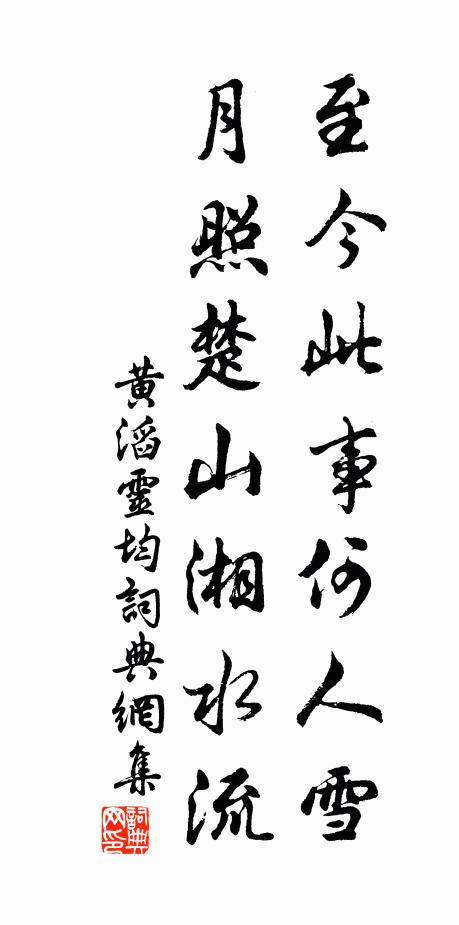 至今此事何人雪
月照楚山湘水流
黃滔靈均詞典網集
詞典网印